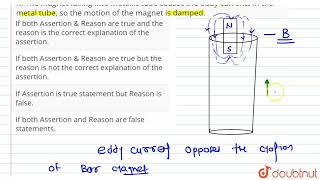 metal tube, so the motion of the magnet is damped.
If both Assertion & Reason are true and the
reason is the correct explanation of the
assertion.
If both Assertion & Reason are true but the
reason is not the correct explanation of the
assertion.
If Assertion is true statement but Reason is
false.
If both Assertion and Reason are false
statements.
N
S
B
eddy current opposes the
of Bar magnet
doubtnut